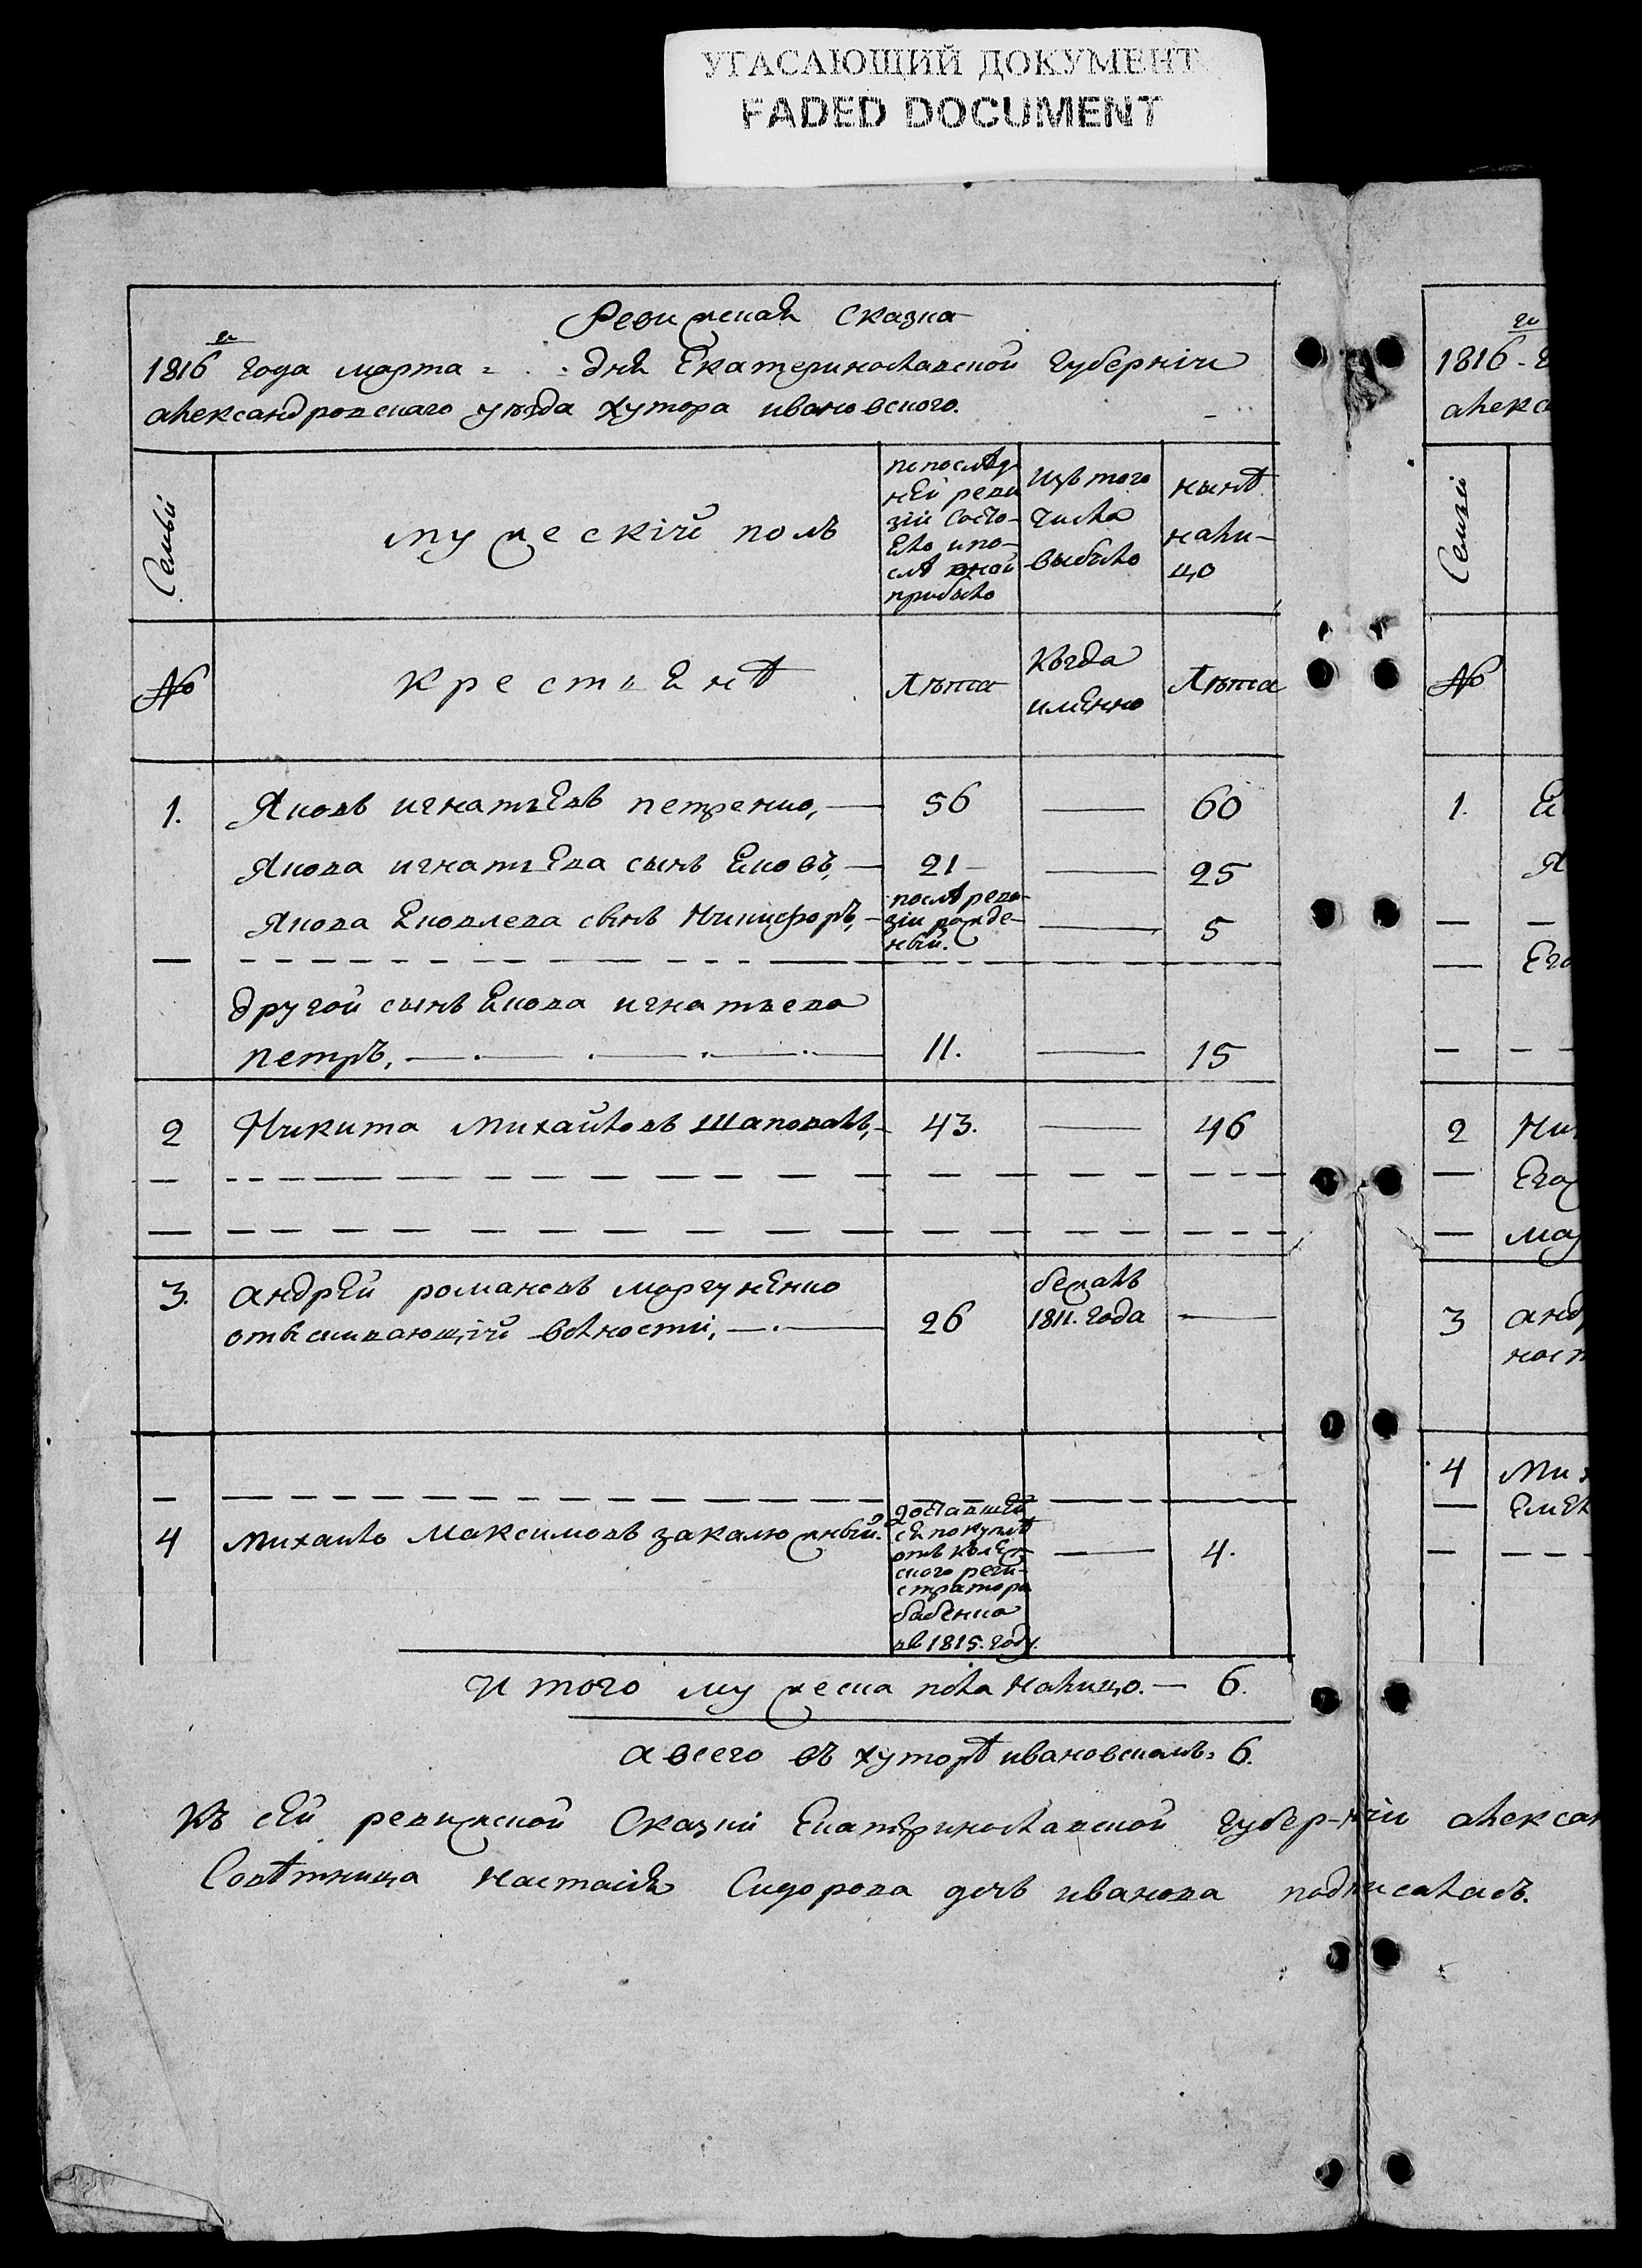 УГАСАЮЩИЙ ДОКУМЕНТ
FADED DOCUMENT
Ревижская Сказка
1816 го года марта = . . = дня Екатеринославской губернiи
александровскаго уѣзда хутора ивановского.
Семьи
мужескiй полъ
по послѣд-
ней реви
зiи состо-
яло и по-
слѣ оной
прибыло
Изъ того
числа
выбыло
нынѣ
нали-
цо
№
крестьянѣ
Лѣта
Когда
имянно
Лѣта
1. Яковъ игнатьевъ петренко, — 56 — 60
Якова игнатьева сынъ Яковъ, — 21 — 25
Якова Яковлева сынъ Никифоръ, — послѣ реви-
зiи рожде-
ный. — 5
другой сынъ Якова игнатьева
петръ, — 11. — 15
2 Никита Михайловъ Шаповалъ, — 43. — 46
3. андрей романовъ моргуненко
отыскивающiй волности, — 26
бежалъ
1811. года —
4 Михайло Максимовъ закалюжный.
доставшей
ся покупкѣ
отъ колеж-
ского реги-
стратора
бабенка
въ 1815. году. — 4.
Итого мужеска пола налицо. — 6.
а всего въ хуторѣ ивановскомъ = 6.
Къ сей ревижской Сказки Екатеринославской губернiи алексан
Совѣтница Настасiя Сидорова дочь иванова подписалась.
1816 - го
алекса
Семьи
№
1.
Я
Его
2 Ник
Его
мар
3 анд
ност
4 Мих